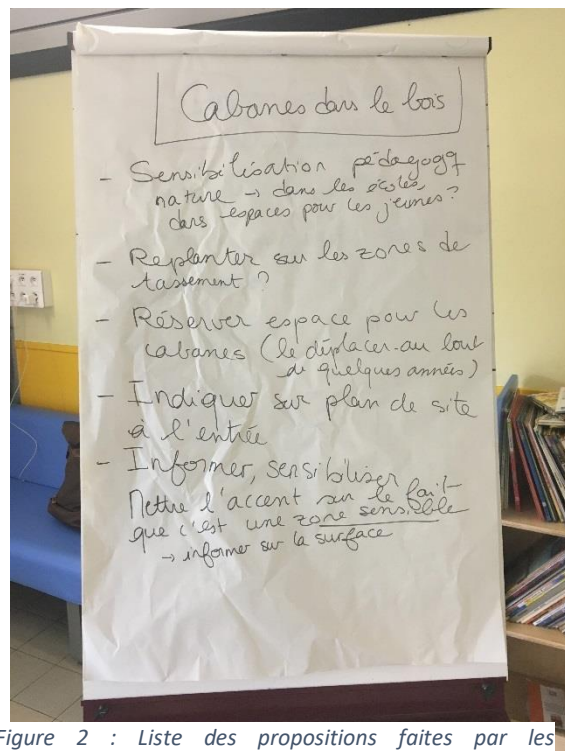 Cabanes dans le bois
- Sensibilisation pédagogq
nature → dans les écoles,
dans espaces pour les jeunes ?
- Replanter sur les zones de
tassement ?
- Réserver espace pour les
cabanes (le déplacer au bout
de quelques années)
- Indiquer sur plan de site
à l'entrée
- Informer, sensibiliser
Mettre l'accent sur le fait
que c'est une zone sensible
→ informer sur la surface
Figure 2 : Liste des propositions faites par les